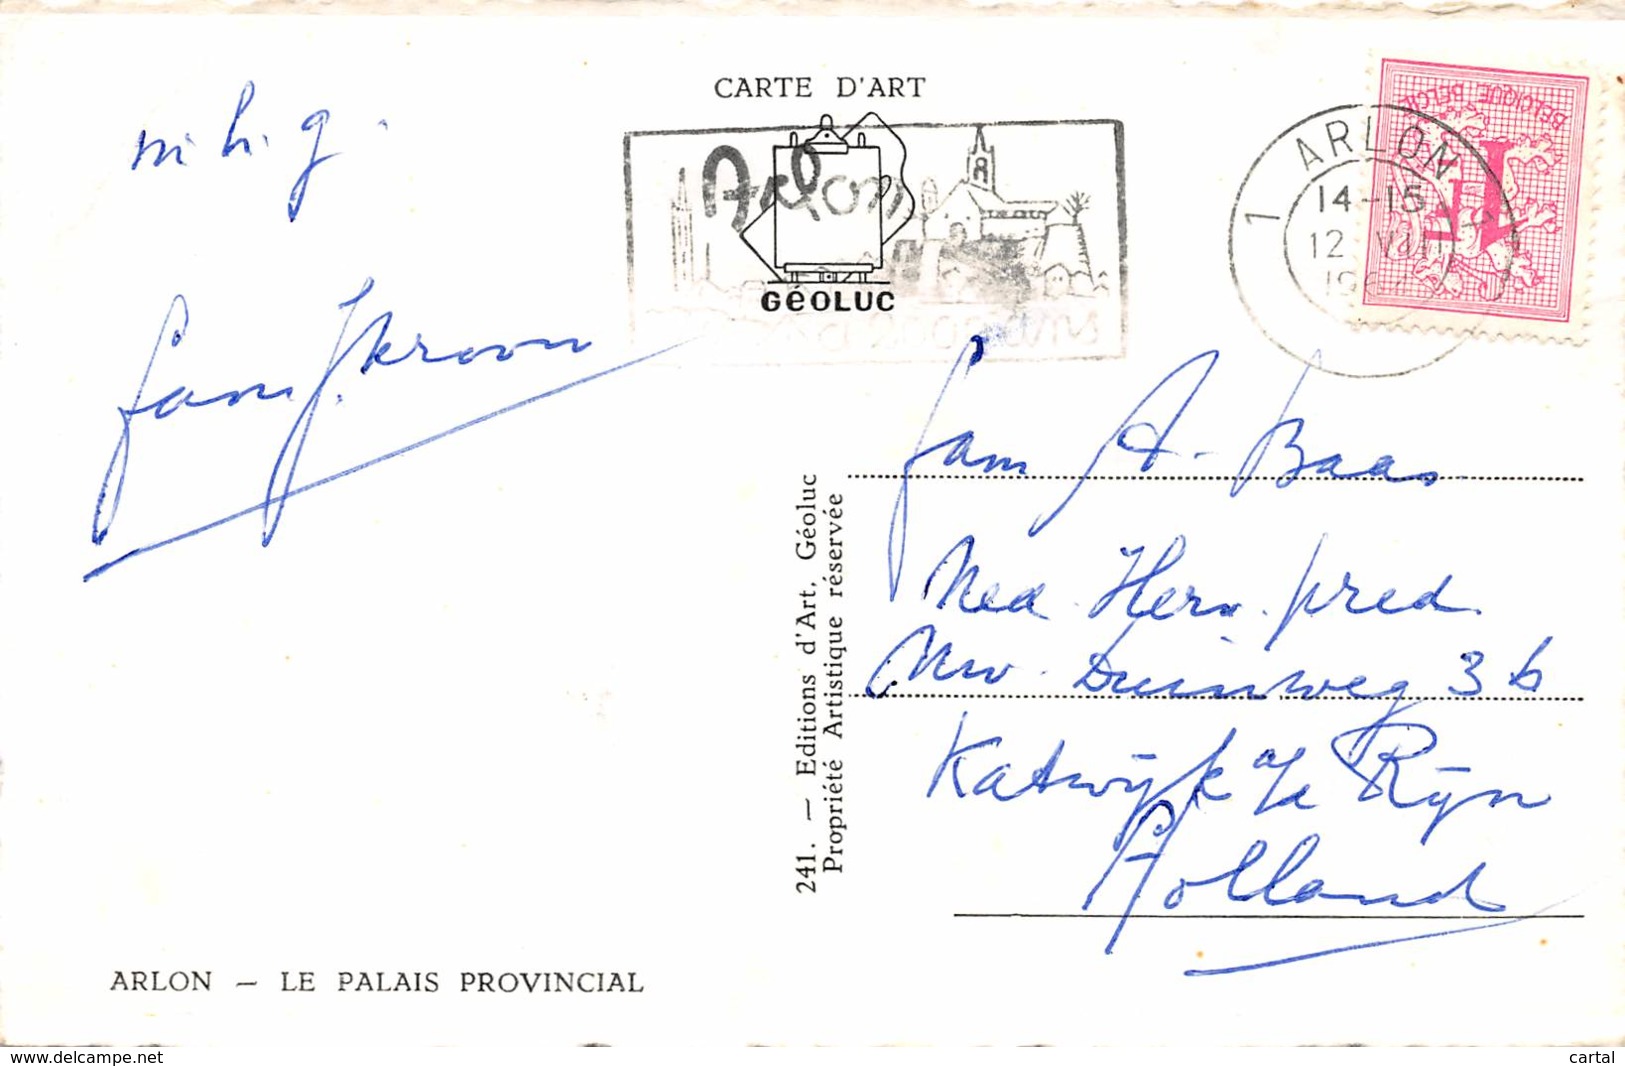 CARTE D'ART
m. h. g.
Arlon
GéOLUC
1 ARLON
14-15
12 VIII
BELGIQUE BELGIË
1F
fam. J. Kroon
fam A. Baas
Ned. Herv. pred.
Nw. Duinweg 3b
Katwijk a/d Rijn
Holland
241. — Editions d'Art, Géoluc
Propriété Artistique réservée
ARLON — LE PALAIS PROVINCIAL
www.delcampe.net
cartal